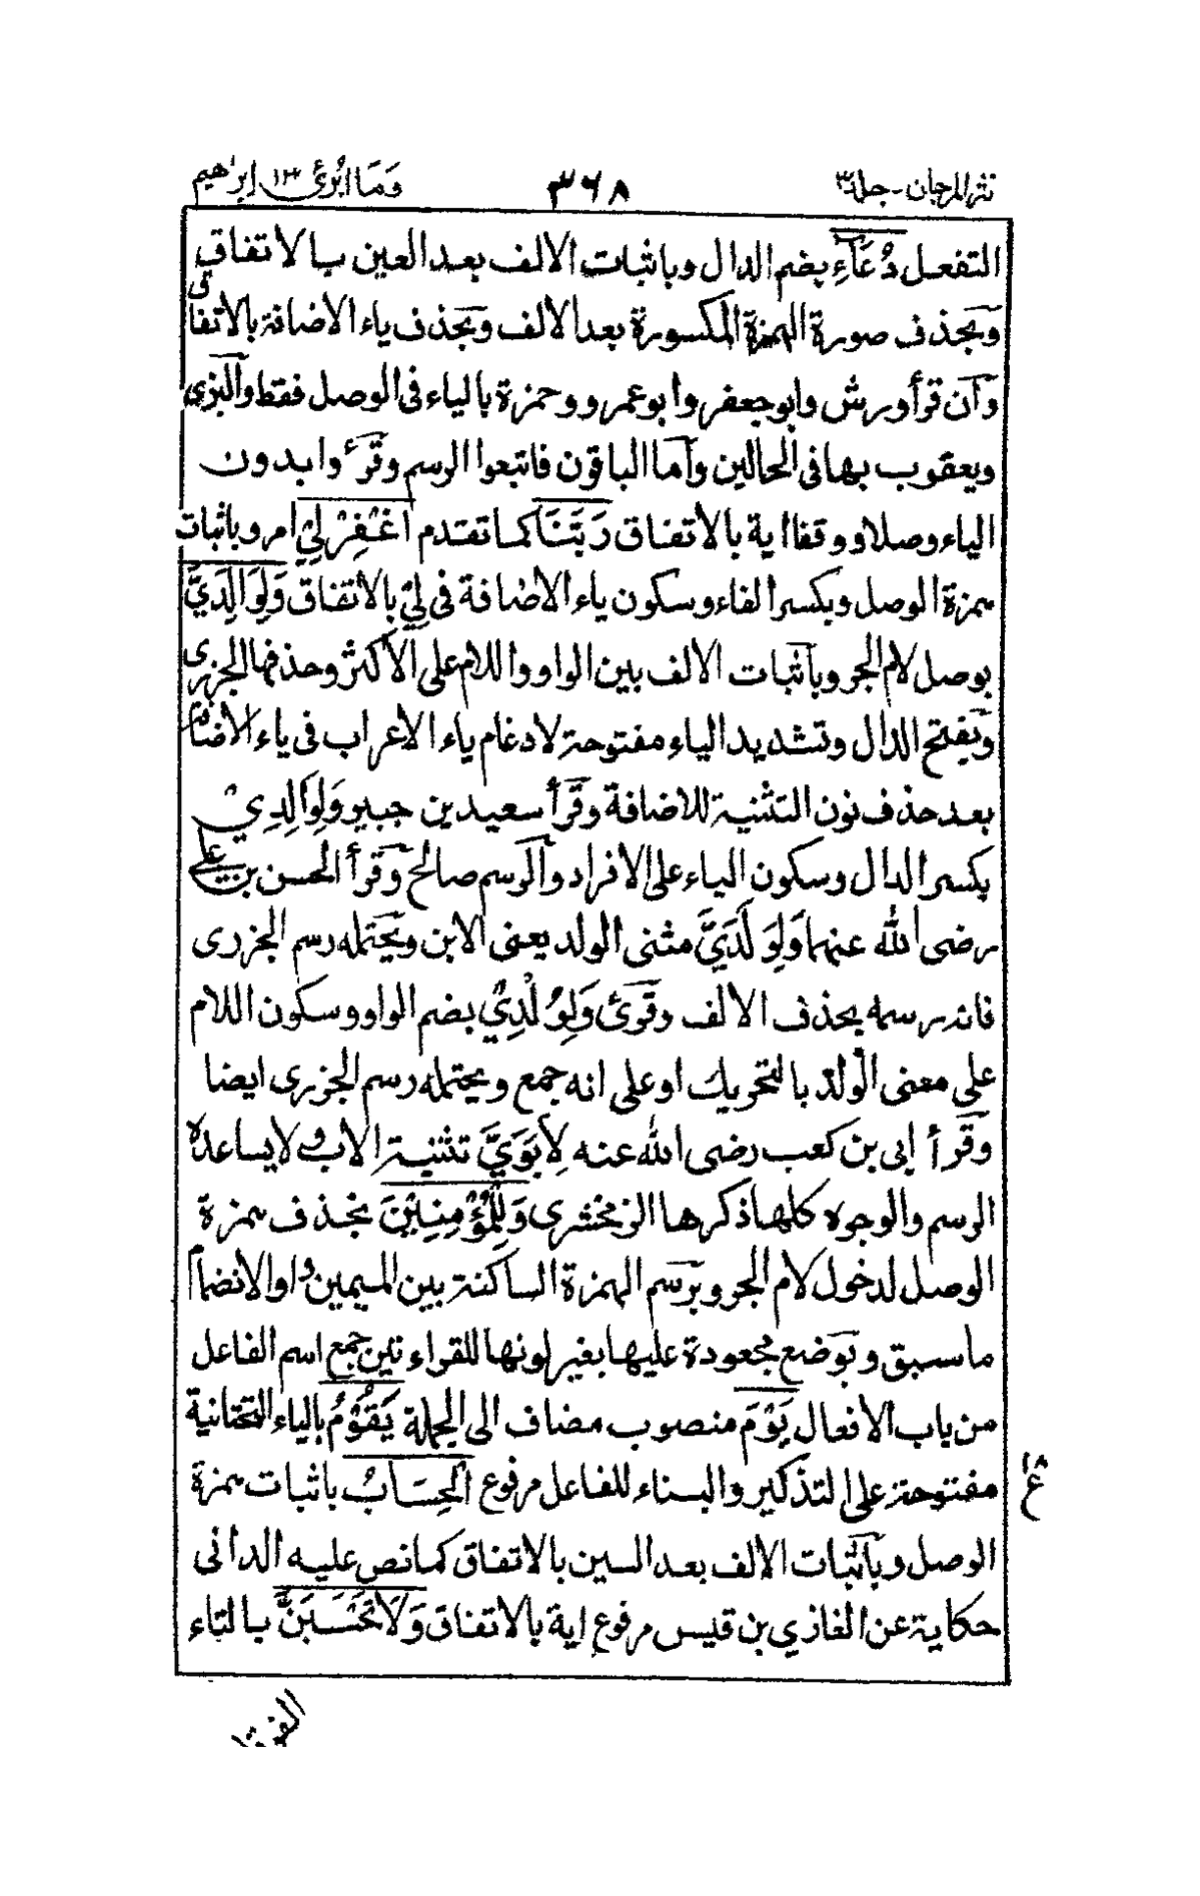 نثر المرجان - جلد ٣
٣٦٨
وَمَا أُبَرِّئُ ١٣ ابراهيم
التفعل دُعَآءِ بضم الدال وباثبات الالف بعد العين بالاتفاق
وبحذف صورة الهمزة المكسورة بعد الالف وبحذف ياء الاضافة بالاتفاق
وان قرأ ورش وابو جعفر وابو عمرو وحمزة بالياء فى الوصل فقط والبزى
ويعقوب بها فى الحالين واما الباقون فاتبعوا الرسم وقرءوا بدون
الياء وصلا ووقفا اية بالاتفاق رَبَّنَا كما تقدم اغْفِرْ لِيْ امر وباثبات
همزة الوصل وبكسر الفاء وسكون ياء الاضافة فى لِيْ بالاتفاق وَلِوَالِدَيَّ
بوصل لام الجر وباثبات الالف بين الواو واللام على الاكثر وحذفها الجزرى
وبفتح الدال وتشديد الياء مفتوحة لادغام ياء الاعراب فى ياء الاضافة
بعد حذف نون التثنية للاضافة وقرأ سعيد بن جبير وَلِوَالِدِيْ
بكسر الدال وسكون الياء على الافراد والرسم صالح وقرأ الحسن بن على
رضى الله عنهما وَلِوَلَدَيَّ مثنى الولد يعنى الابن ويحتمله رسم الجزرى
فانه رسمه بحذف الالف وقرئ وَلِوُلْدِيْ بضم الواو وسكون اللام
على معنى الولد بالتحريك او على انه جمع ويحتمله رسم الجزرى ايضا
وقرأ ابى بن كعب رضى الله عنه لِأَبَوَيَّ تثنية الاب ولا يساعده
الرسم والوجوه كلها ذكرها الزمخشرى وَلِلْمُؤْمِنِيْنَ بحذف همزة
الوصل لدخول لام الجر وبرسم الهمزة الساكنة بين الميمين واوا لانضمام
ما سبق وبوضع مجعودة عليها بغير لونها للقراءتين جمع اسم الفاعل
من باب الافعال يَوْمَ منصوب مضاف الى الجملة يَقُوْمُ بالياء التحتانية
مفتوحة على التذكير والبناء للفاعل مرفوع الْحِسَابُ باثبات همزة
١٨
ع
الوصل وباثبات الالف بعد السين بالاتفاق كما نص عليه الدانى
حكاية عن الغازي بن قيس مرفوع اية بالاتفاق وَلَا تَحْسَبَنَّ بالتاء